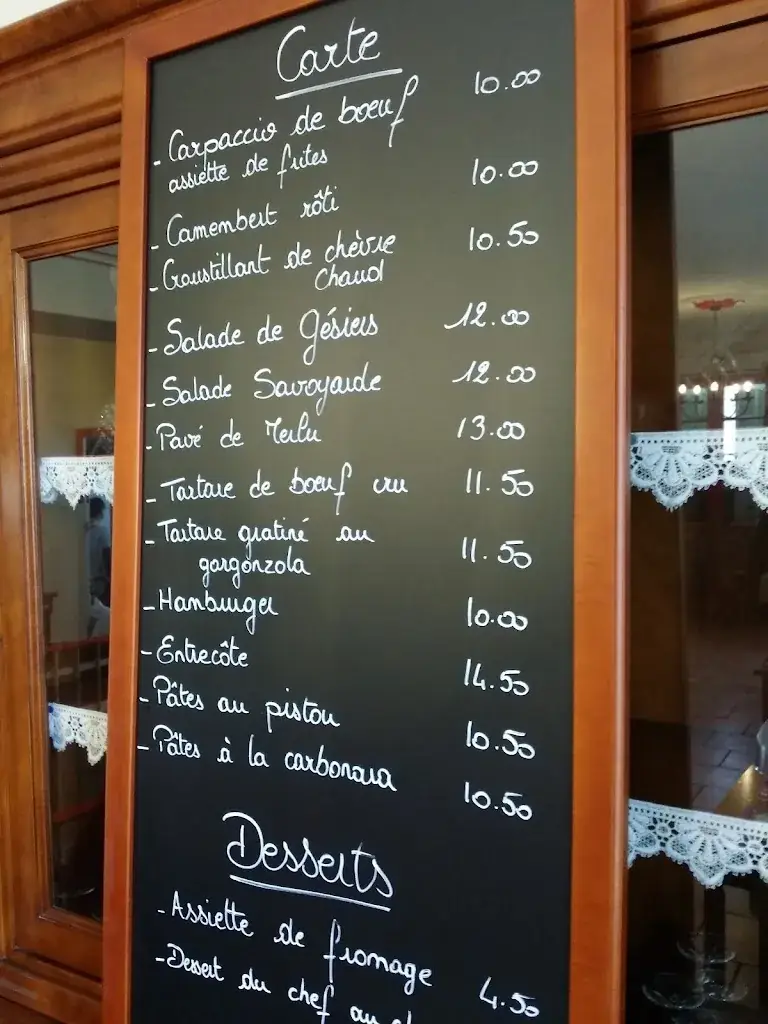 Carte
- Carpaccio de boeuf 10.00
assiette de frites
- Camembert rôti 10.00
- Croustillant de chèvre 10.50
chaud
- Salade de Gésiers 12.00
- Salade Savoyarde 12.00
- Pavé de Merlu 13.00
- Tartare de boeuf cru 11.50
- Tartare gratiné au
gorgonzola 11.50
- Hamburger 10.00
- Entrecôte 14.50
- Pâtes au pistou 10.50
- Pâtes à la carbonara 10.50
Desserts
- Assiette de fromage 4.50
- Dessert du chef au